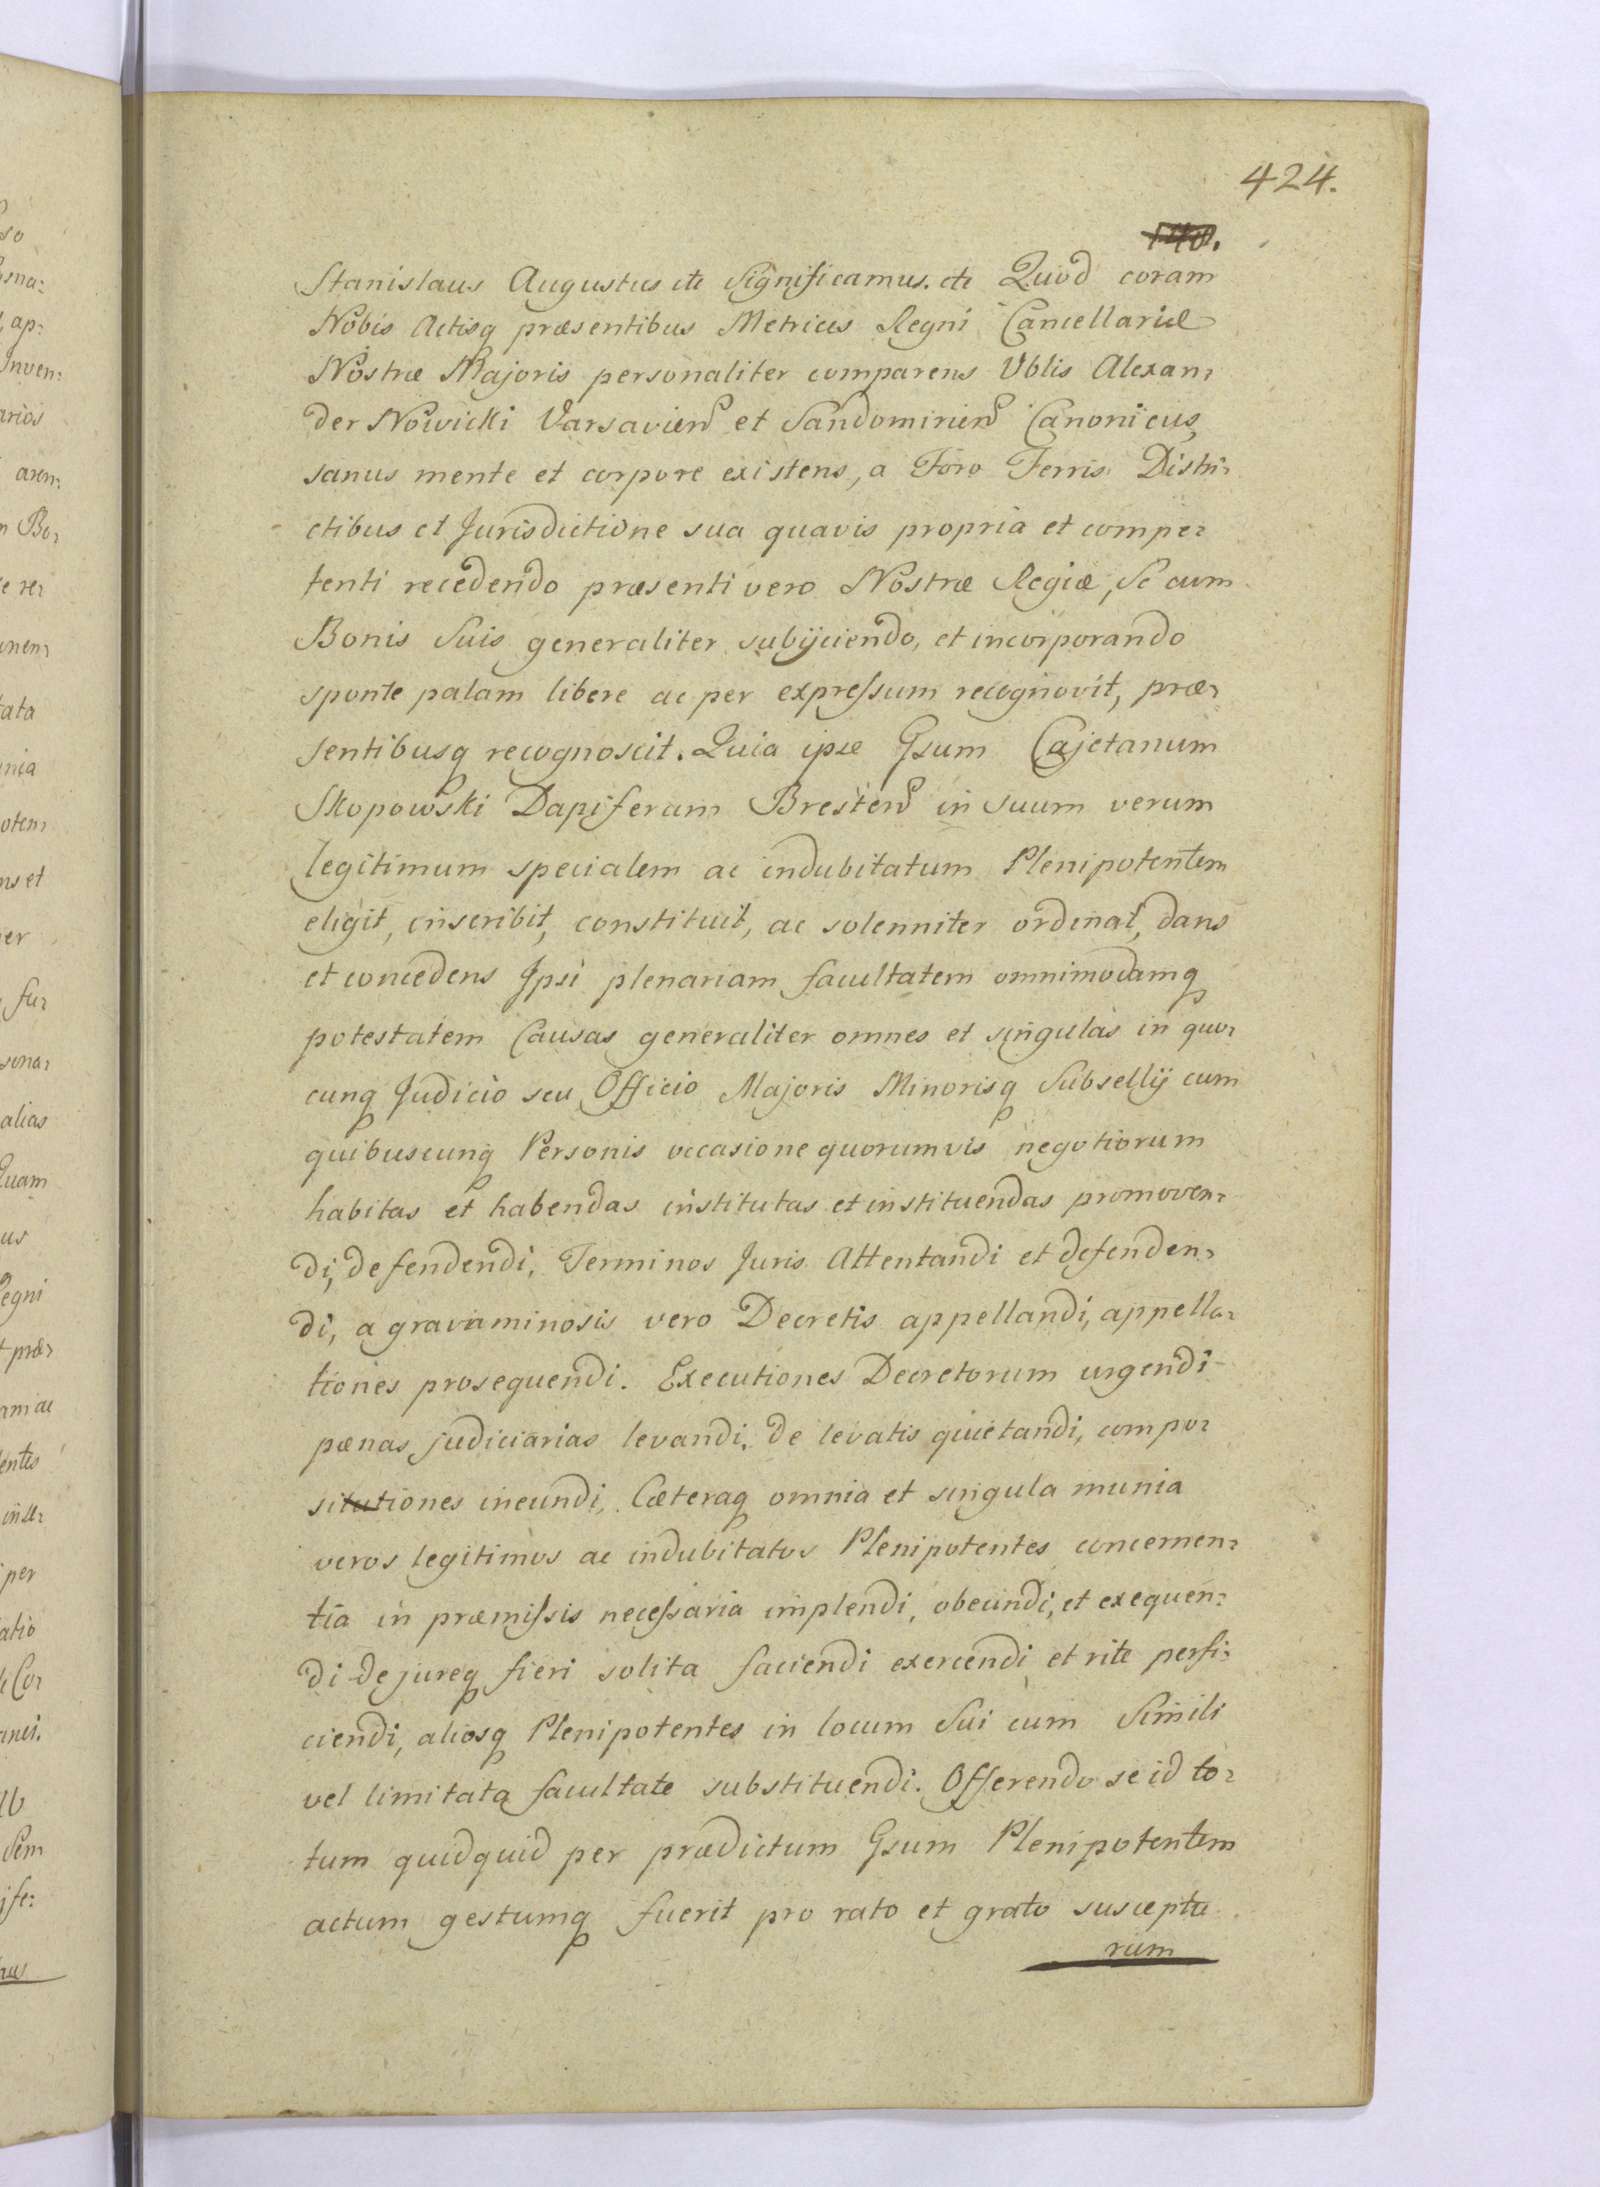 424.
Stanislaus Augustus etc Significamus. etc Quod coram
Nobis Actisq præsentibus Metrices Regni Cancellariæ
Nostræ Majoris personaliter comparens Vblis Alexan:
der Nowicki Varsavien et Sandomirien Canonicus
sanus mente et corpore existens, a Foro Terris Distri:
ctibus et Jurisdictione sua quavis propria et compe:
tenti recedendo præsenti vero Nostræ Regiæ, Se cum
Bonis Suis generaliter subijciendo, et incorporando
sponte palam libere ac per expressum recognovit, præ:
sentibusq recognoscit. Quia ipse Gsum Cajetanum
Skopowski Dapiferum Bresten in suum verum
legitimum specialem ac indubitatum Plenipotentem
eligit, inscribit, constituit, ac solenniter ordinat, dans
et concedens Ipsi plenariam facultatem omnimodamq
potestatem Causas generaliter omnes et singulas in quo:
cunq Judicio seu Officio Majoris Minorisq Subsellij cum
quibuscunq Personis occasione quorumvis negotiorum
habitas et habendas institutas et instituendas promoven:
di, defendendi, Terminos Juris Attentandi et defenden:
di, a gravaminosis vero Decretis appellandi, appella:
tiones prosequendi. Executiones Decretorum urgendi
pænas judiciarias levandi, de levatis quietandi, compo:
situtiones ineundi, Cæteraq omnia et singula munia
veros legitimos ac indubitatos Plenipotentes concernen:
tia in præmissis necessaria implendi, obeundi, et exequen:
di de jureq fieri solita faciendi exercendi et rite perfi:
ciendi, aliosq Plenipotentes in locum Sui cum Simili
vel limitata facultate substituendi. Offerendo se id to:
tum quidquid per prædictum Gsum Plenipotentem
actum gestumq fuerit pro rato et grato susceptu
rum